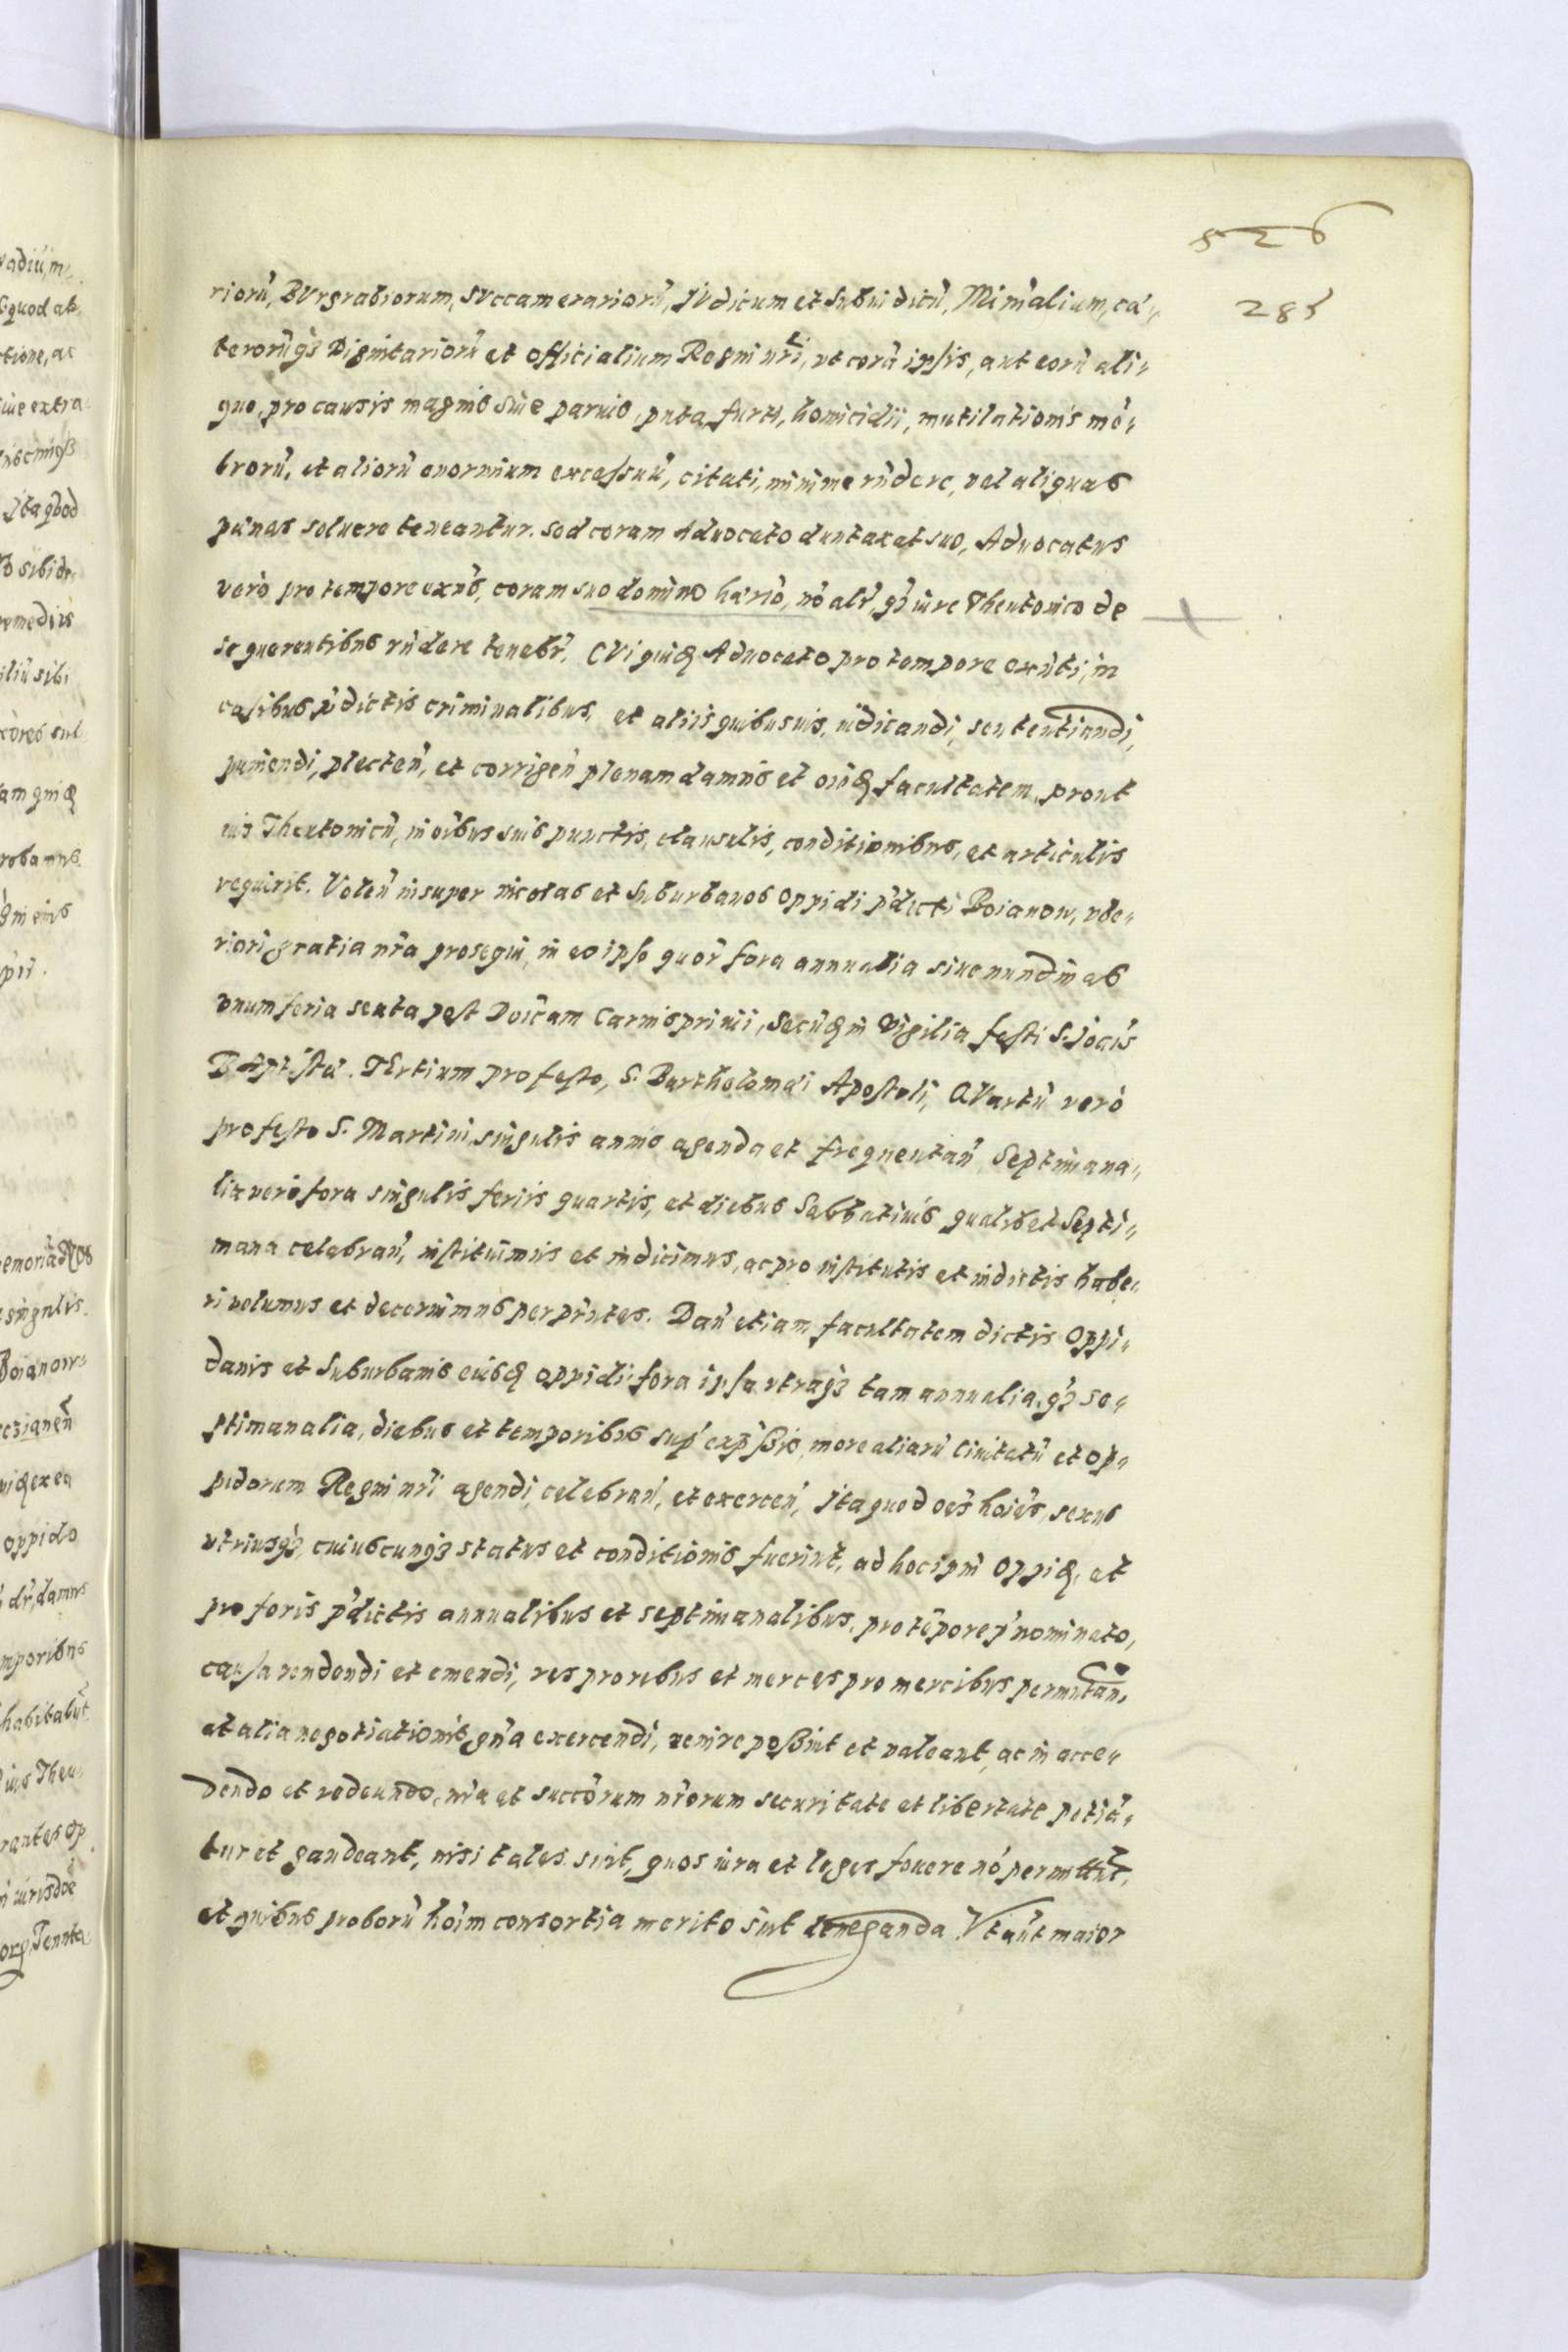 526
285
riorũ, BVrgrabiorum, SVccamerariorũ, JVdicum et Subiudicũ, Minĩalium, cæ„
terorũq3 Dignitariorũ et officialium Regni nr̃i, vt corã ipsis, aut eorũ ali„
quo, pro causis magnis siue paruis, puta, furti, homicidii, mutilationis mẽ„
brorũ, et aliorũ enormium excessuũ, citati, minime rñdere, vel aliquas
pænas soluere teneantur. Sed coram Aduocato duntaxat suo, Aduocatus
verò pro tempore exñs, coram suo domino hærio, nõ alr̃, q̃3 iure Theutonico de
se querentibus rñdere tenebr̃. CVi quiđ Aduocato pro tempore exñti, in
casibus p̃dictis criminalibus, et aliis quibusuis, iudicandi, sententiandi,
puniendi, plecteñ, et corrigeñ plenam damus et oĩođ facultatem, prout
ius Theutonicũ, in oĩbus suis punctis, clausulis, conditionibus, et articulis
requirit. Voleñ insuper incolas et Suburbanos oppidi p̃dicti Boianow, vbe„
riori gratia nr̃a prosequi, in eo ipso quor̃ fora annualia siue nundinas
vnum feria sexta post Doĩcam Carnisprivii, secũđ in vigilia festi S. Joãis
BAptistæ. TErtium pro festo, S. Bartholomæi Apostoli, QVartũ verò
pro festo S. Martini, singulis annis agenda et frequentañ Septimana„
lia verò fora singulis feriis quartis, et diebus Sabbatinis qualibet Septi„
mana celebrañ, instituimus et indicimus, ac pro institutis et indictis habe„
ri volumus et decernimus per p̃ntes. Dañ etiam facultatem dictis Oppi„
danis et Suburbanis eiusđ oppidi, fora ipsa vtraq3 tam annualia, q̃3 se„
ptimanalia, diebus et temporibus sup̃ exp̃ßis, more aliarũ Ciuitatũ et op„
pidorum Regni nr̃i agendi, celebrañ, et exerceñ, Jta quod oẽs hoĩes, sexus
vtriusq3, cuiuscunq3 status et conditionis fuerint, ad hoc ipm̃ Oppiđ, et
pro foris p̃dictis annualibus et septimanalibus, pro tẽpore p̃nominato,
causa vendendi et emendi, res pro rebus et merces pro mercibus permutañ,
et alia negotiationis gña exercendi, venire poßint et valeant, ac in acce„
dendo et redeundo, nr̃a et succõrum nr̃orum securitate et libertate potiã„
tur et gaudeant, nisi tales sint, quos iura et leges fouere nõ permittũt,
et quibus proborũ hoĩm consortia merito sint deneganda. Vt aũt maior